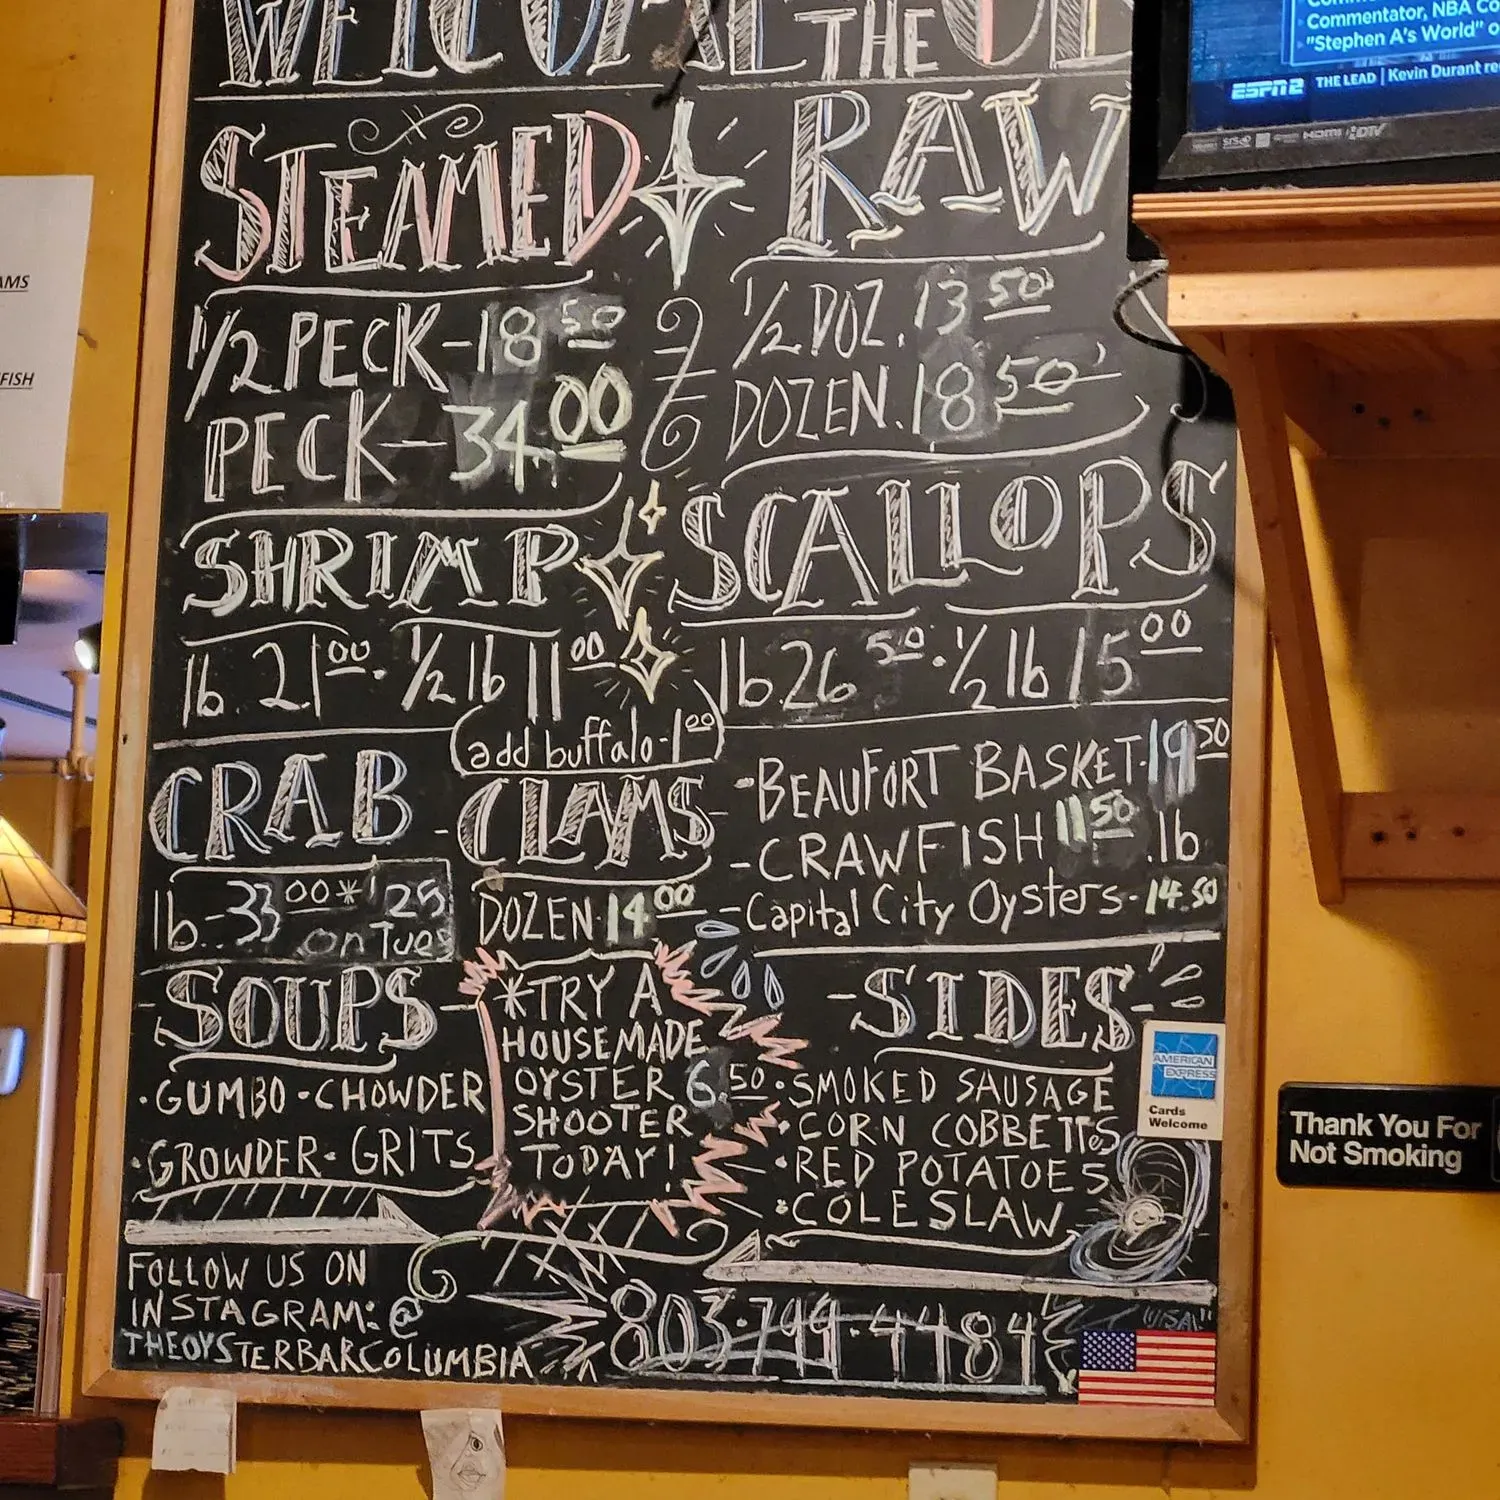 WELCOME THE
STEAMED
1/2 PECK-18 50
PECK-34.00
RAW
1/2 DOZ. 13 50
DOZEN. 18 50
SHRIMP
lb 21 00. 1/2 lb 11 00
add buffalo-1 00
SCALLOPS
lb 26 50. 1/2 lb 15 00
CRAB
lb-33 00* 25
on Tues
CLAMS
DOZEN 14 00
-BEAUFORT BASKET-19 50
-CRAWFISH 11 50 .lb
-Capital City Oysters-14.50
-SOUPS-
·GUMBO·CHOWDER
·GROWDER·GRITS
*TRY A
HOUSEMADE
OYSTER 6.50
SHOOTER
TODAY!
-SIDES-
·SMOKED SAUSAGE
·CORN COBBETTES
·RED POTATOES
·COLESLAW
FOLLOW US ON
INSTAGRAM: @
THEOYSTERBARCOLUMBIA
803·799·4484
VISA
AMERICAN
EXPRESS
Cards
Welcome
Commentator, NBA Co
"Stephen A's World" o
ESPN2 THE LEAD | Kevin Durant re
HDMI
Thank You For
Not Smoking
AMS
FISH